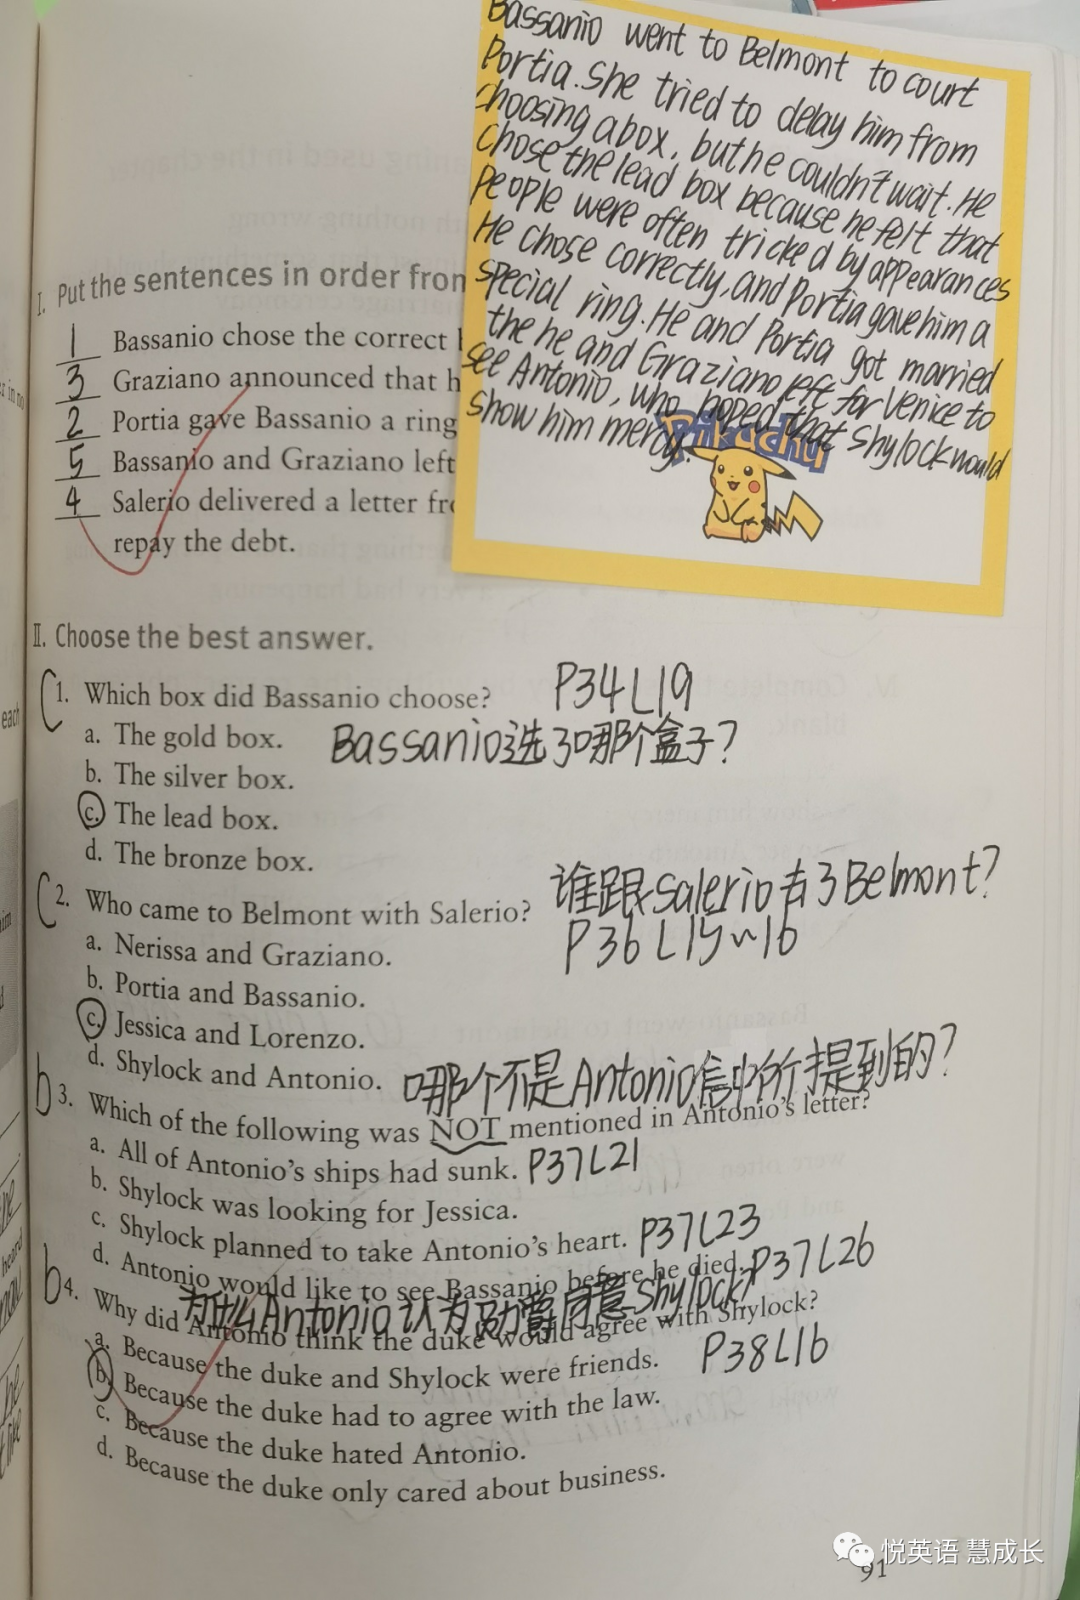 Bassanio went to Belmont to court
Portia. She tried to delay him from
choosing a box, but he couldn't wait. He
chose the lead box because he felt that
people were often tricked by appearances
He chose correctly, and Portia gave him a
special ring. He and Portia got married
the he and Graziano left for Venice to
see Antonio, who hoped that Shylock would
show him mercy.
Pikachu
I. Put the sentences in order fron
1 Bassanio chose the correct
3 Graziano announced that h
2 Portia gave Bassanio a ring
5 Bassanio and Graziano left
4 Salerio delivered a letter fr
repay the debt.
II. Choose the best answer.
C 1. Which box did Bassanio choose? P34L19
a. The gold box. Bassanio选了哪个盒子?
b. The silver box.
c. The lead box.
d. The bronze box.
C 2. Who came to Belmont with Salerio? 谁跟Salerio去了Belmont?
a. Nerissa and Graziano. P36L15~16
b. Portia and Bassanio.
c. Jessica and Lorenzo.
d. Shylock and Antonio. 哪个不是Antonio信中所提到的?
b 3. Which of the following was NOT mentioned in Antonio's letter?
a. All of Antonio's ships had sunk. P37L21
b. Shylock was looking for Jessica.
c. Shylock planned to take Antonio's heart. P37L23
d. Antonio would like to see Bassanio before he died. P37L26
为什么Antonio认为公爵同意Shylock?
b 4. Why did Antonio think the duke would agree with Shylock?
a. Because the duke and Shylock were friends. P38L16
b. Because the duke had to agree with the law.
c. Because the duke hated Antonio.
d. Because the duke only cared about business.
悦英语 慧成长
91